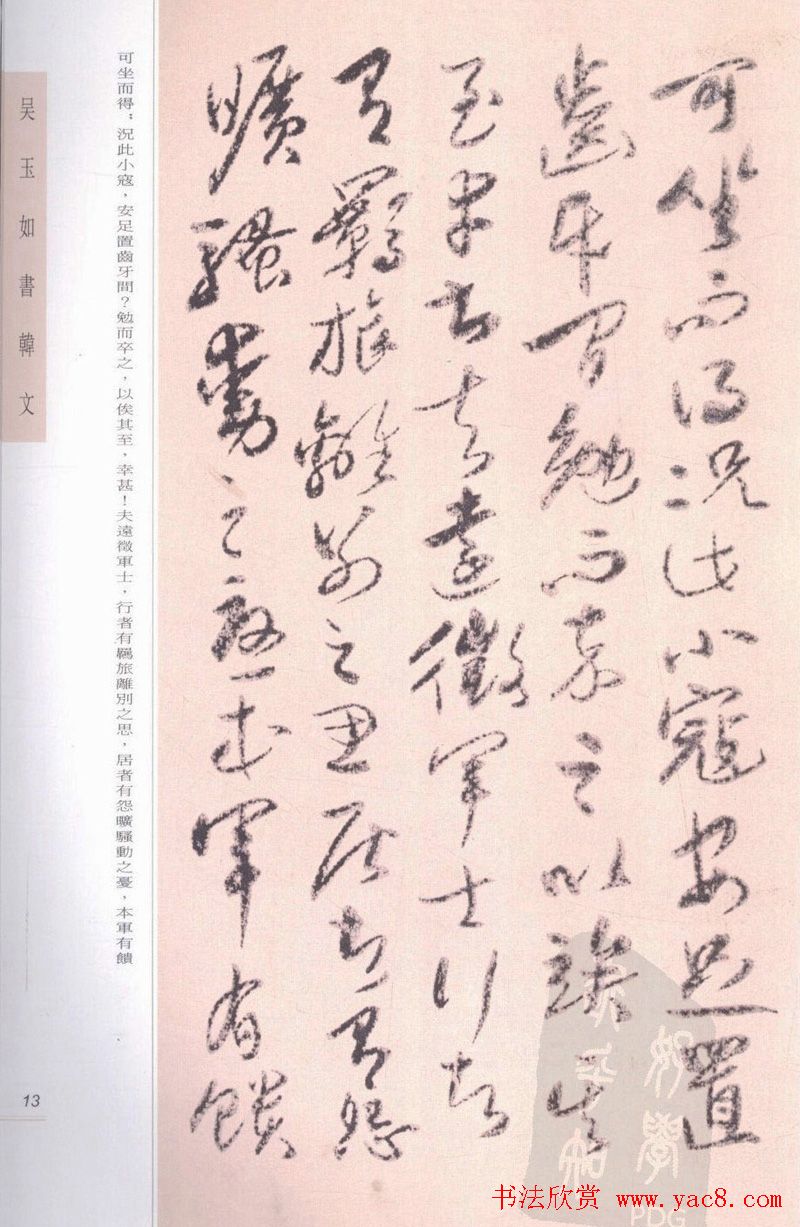 可坐而得況此小寇安足置
齒牙間勉而卒之以竢其
至幸甚夫遠徵軍士行者
有羈旅離別之思居者有怨
曠騷動之憂本軍有饋
可坐而得；況此小寇，安足置齒牙間？勉而卒之，以俟其至，幸甚！夫遠徵軍士，行者有羈旅離別之思，居者有怨曠騷動之憂，本軍有饋
吴玉如書韓文
13
书法欣赏 www.yac8.com
PDG